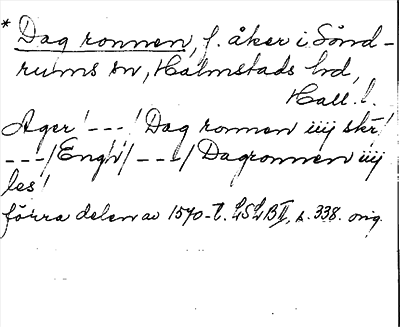 * Dag ronnen, f. åker i Sönd-
rums sn, Halmstads hd,
Hall. l.
Ager / --- / Dag ronnen iiij skr /
--- / Engh / --- / Dagronnen iiij
les /
förra delen av 1570-t. LSLB II, s. 338. orig.